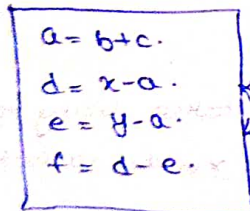 a = b+c.
d = x-a.
e = y-a.
f = d-e.